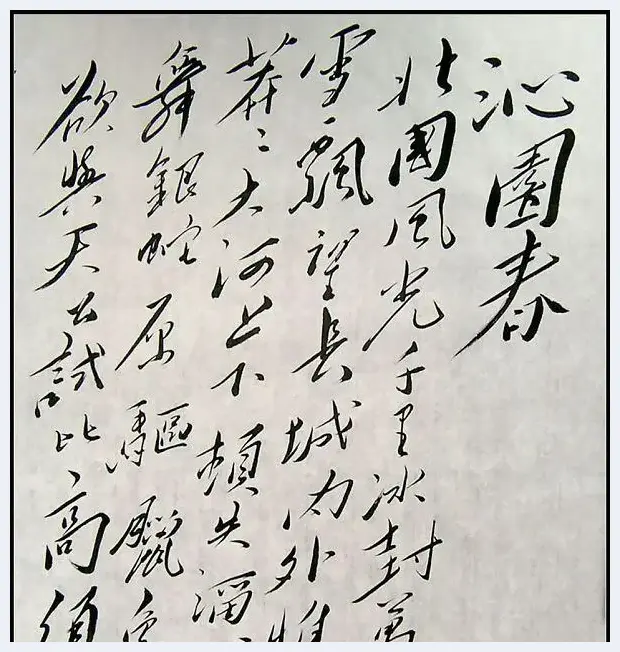 沁園春
北國風光千里冰封萬
雪飄望長城內外惟
莽〻大河上下頓失滔
舞銀蛇原驅臘
欲與天公試比高須